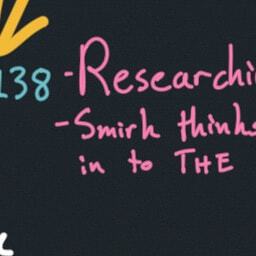 138 - Researchi
- Smirh thinks
in to THE